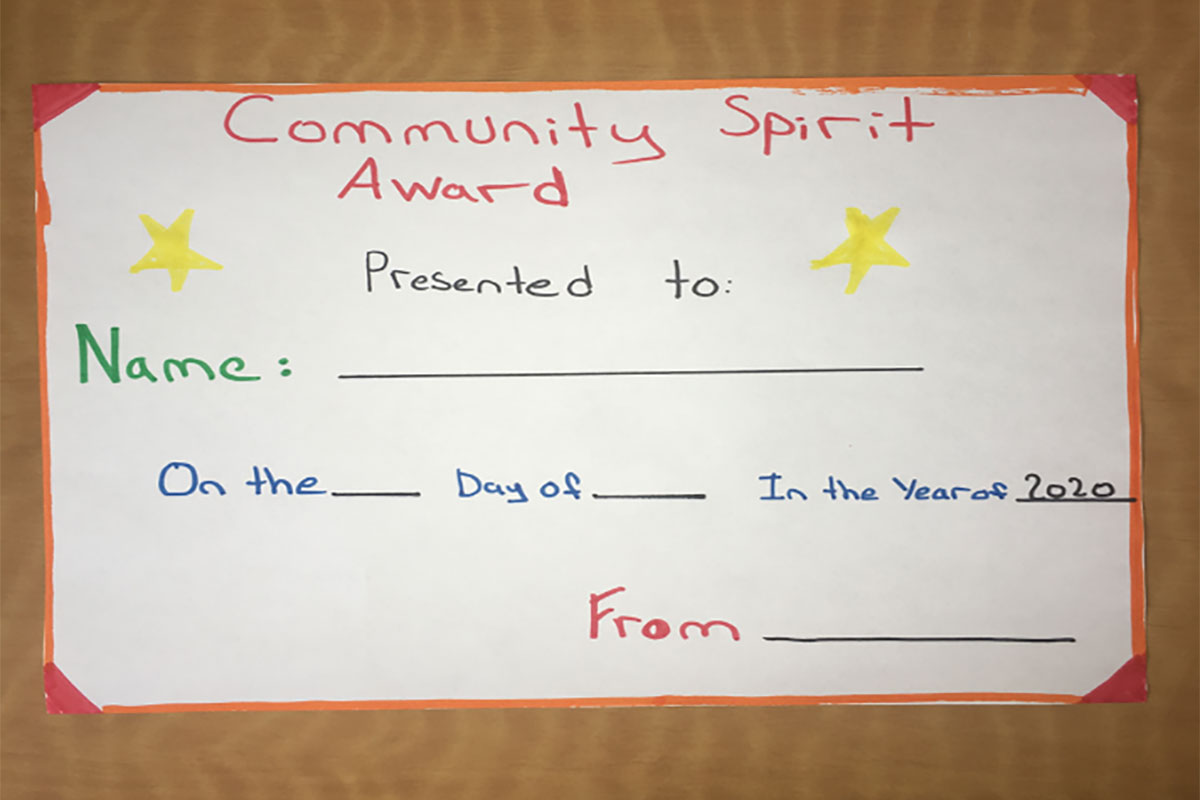 Community Spirit
Award
Presented to:
Name:
On the Day of In the Year of 2020
From